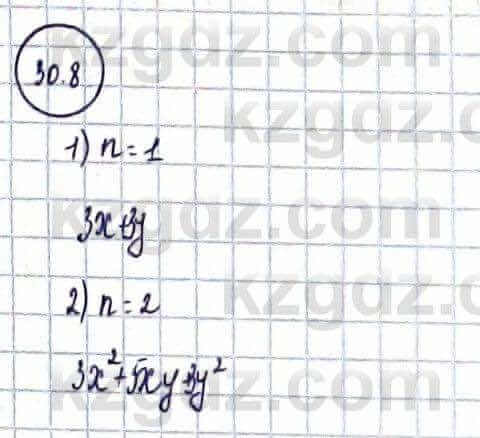 30.8
1) n = 1
3x+3y
2) n = 2
3x²+5xy+3y²
kzgdz.com
kzgdz.com
kzgdz.com
kzgdz.com
kzgdz.com